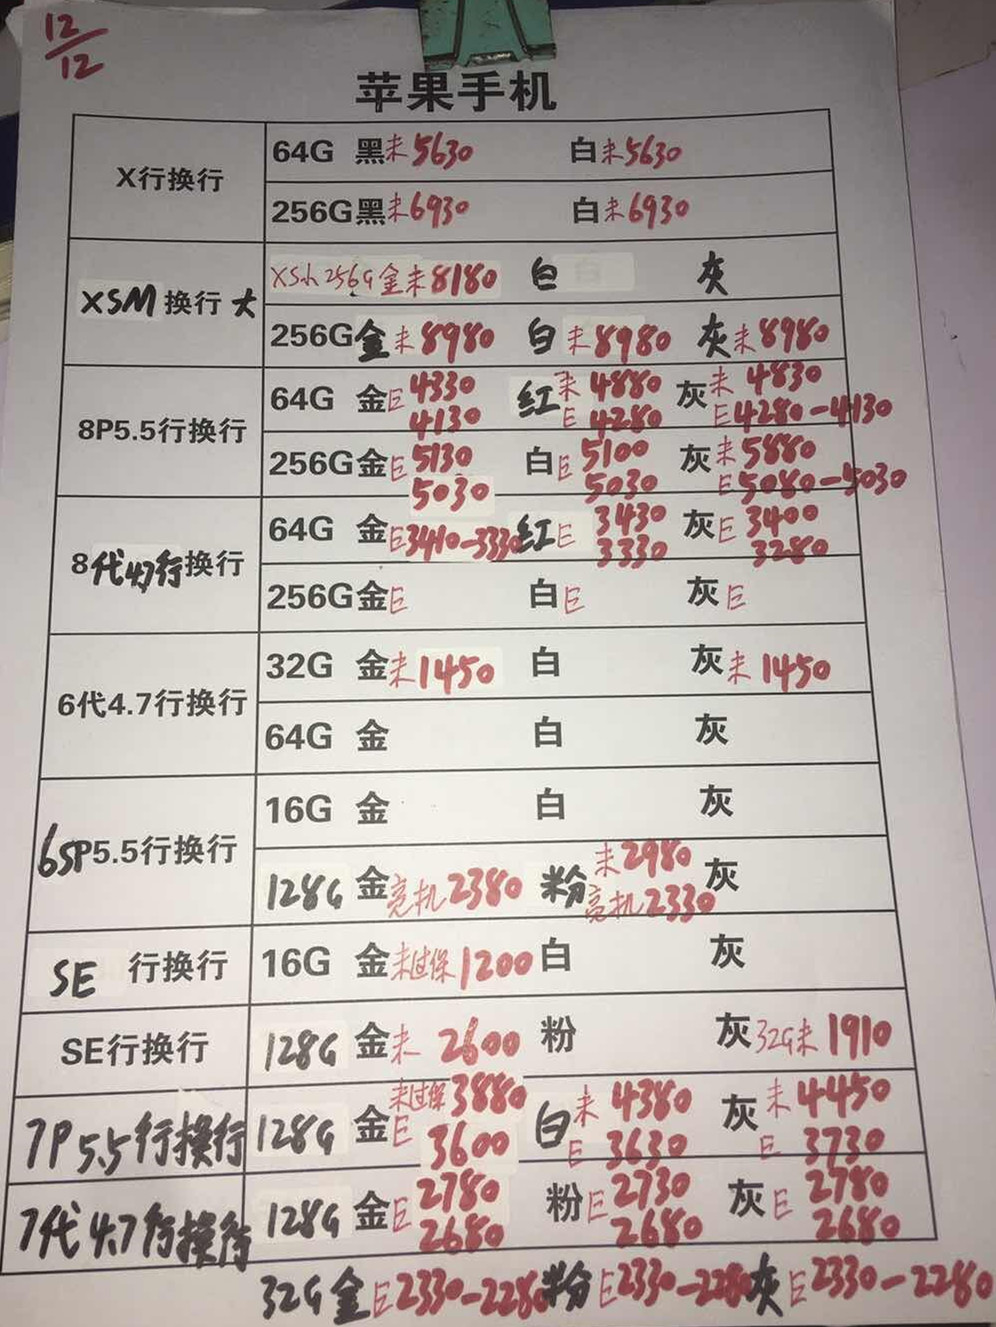 12/12
苹果手机
X行换行 64G 黑未5630 白未5630
256G黑未6930 白未6930
XSM换行大 XSM 256G金未8180 白 灰
256G金未8980 白未8980 灰未8980
8P5.5行换行 64G 金E4330 4130 红未4880 E4280 灰未4830 E4280-4130
256G金E5130 5030 白E5100 5030 灰未5880 E5080-5030
8代4.7行换行 64G 金E3410-3330 红E3430 3330 灰E3400 3280
256G金E 白E 灰E
6代4.7行换行 32G 金未1450 白 灰未1450
64G 金 白 灰
6SP5.5行换行 16G 金 白 灰
128G 金亮机2380 粉未2980 亮机2330 灰
SE 行换行 16G 金未过保1200 白 灰
SE行换行 128G 金未2600 粉 灰32G未1910
7P5.5行换行 128G 金未过保3880 E3600 白未4380 E3630 灰未4450 E3730
7代4.7行换行 128G 金E2780 2680 粉E2730 2680 灰E2780 2680
32G金E2330-2280 粉E2330-2280 灰E2330-2280